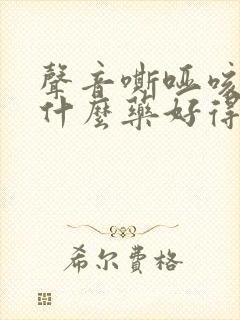 聲音嘶啞咳
什麼藥好得
希尔费格